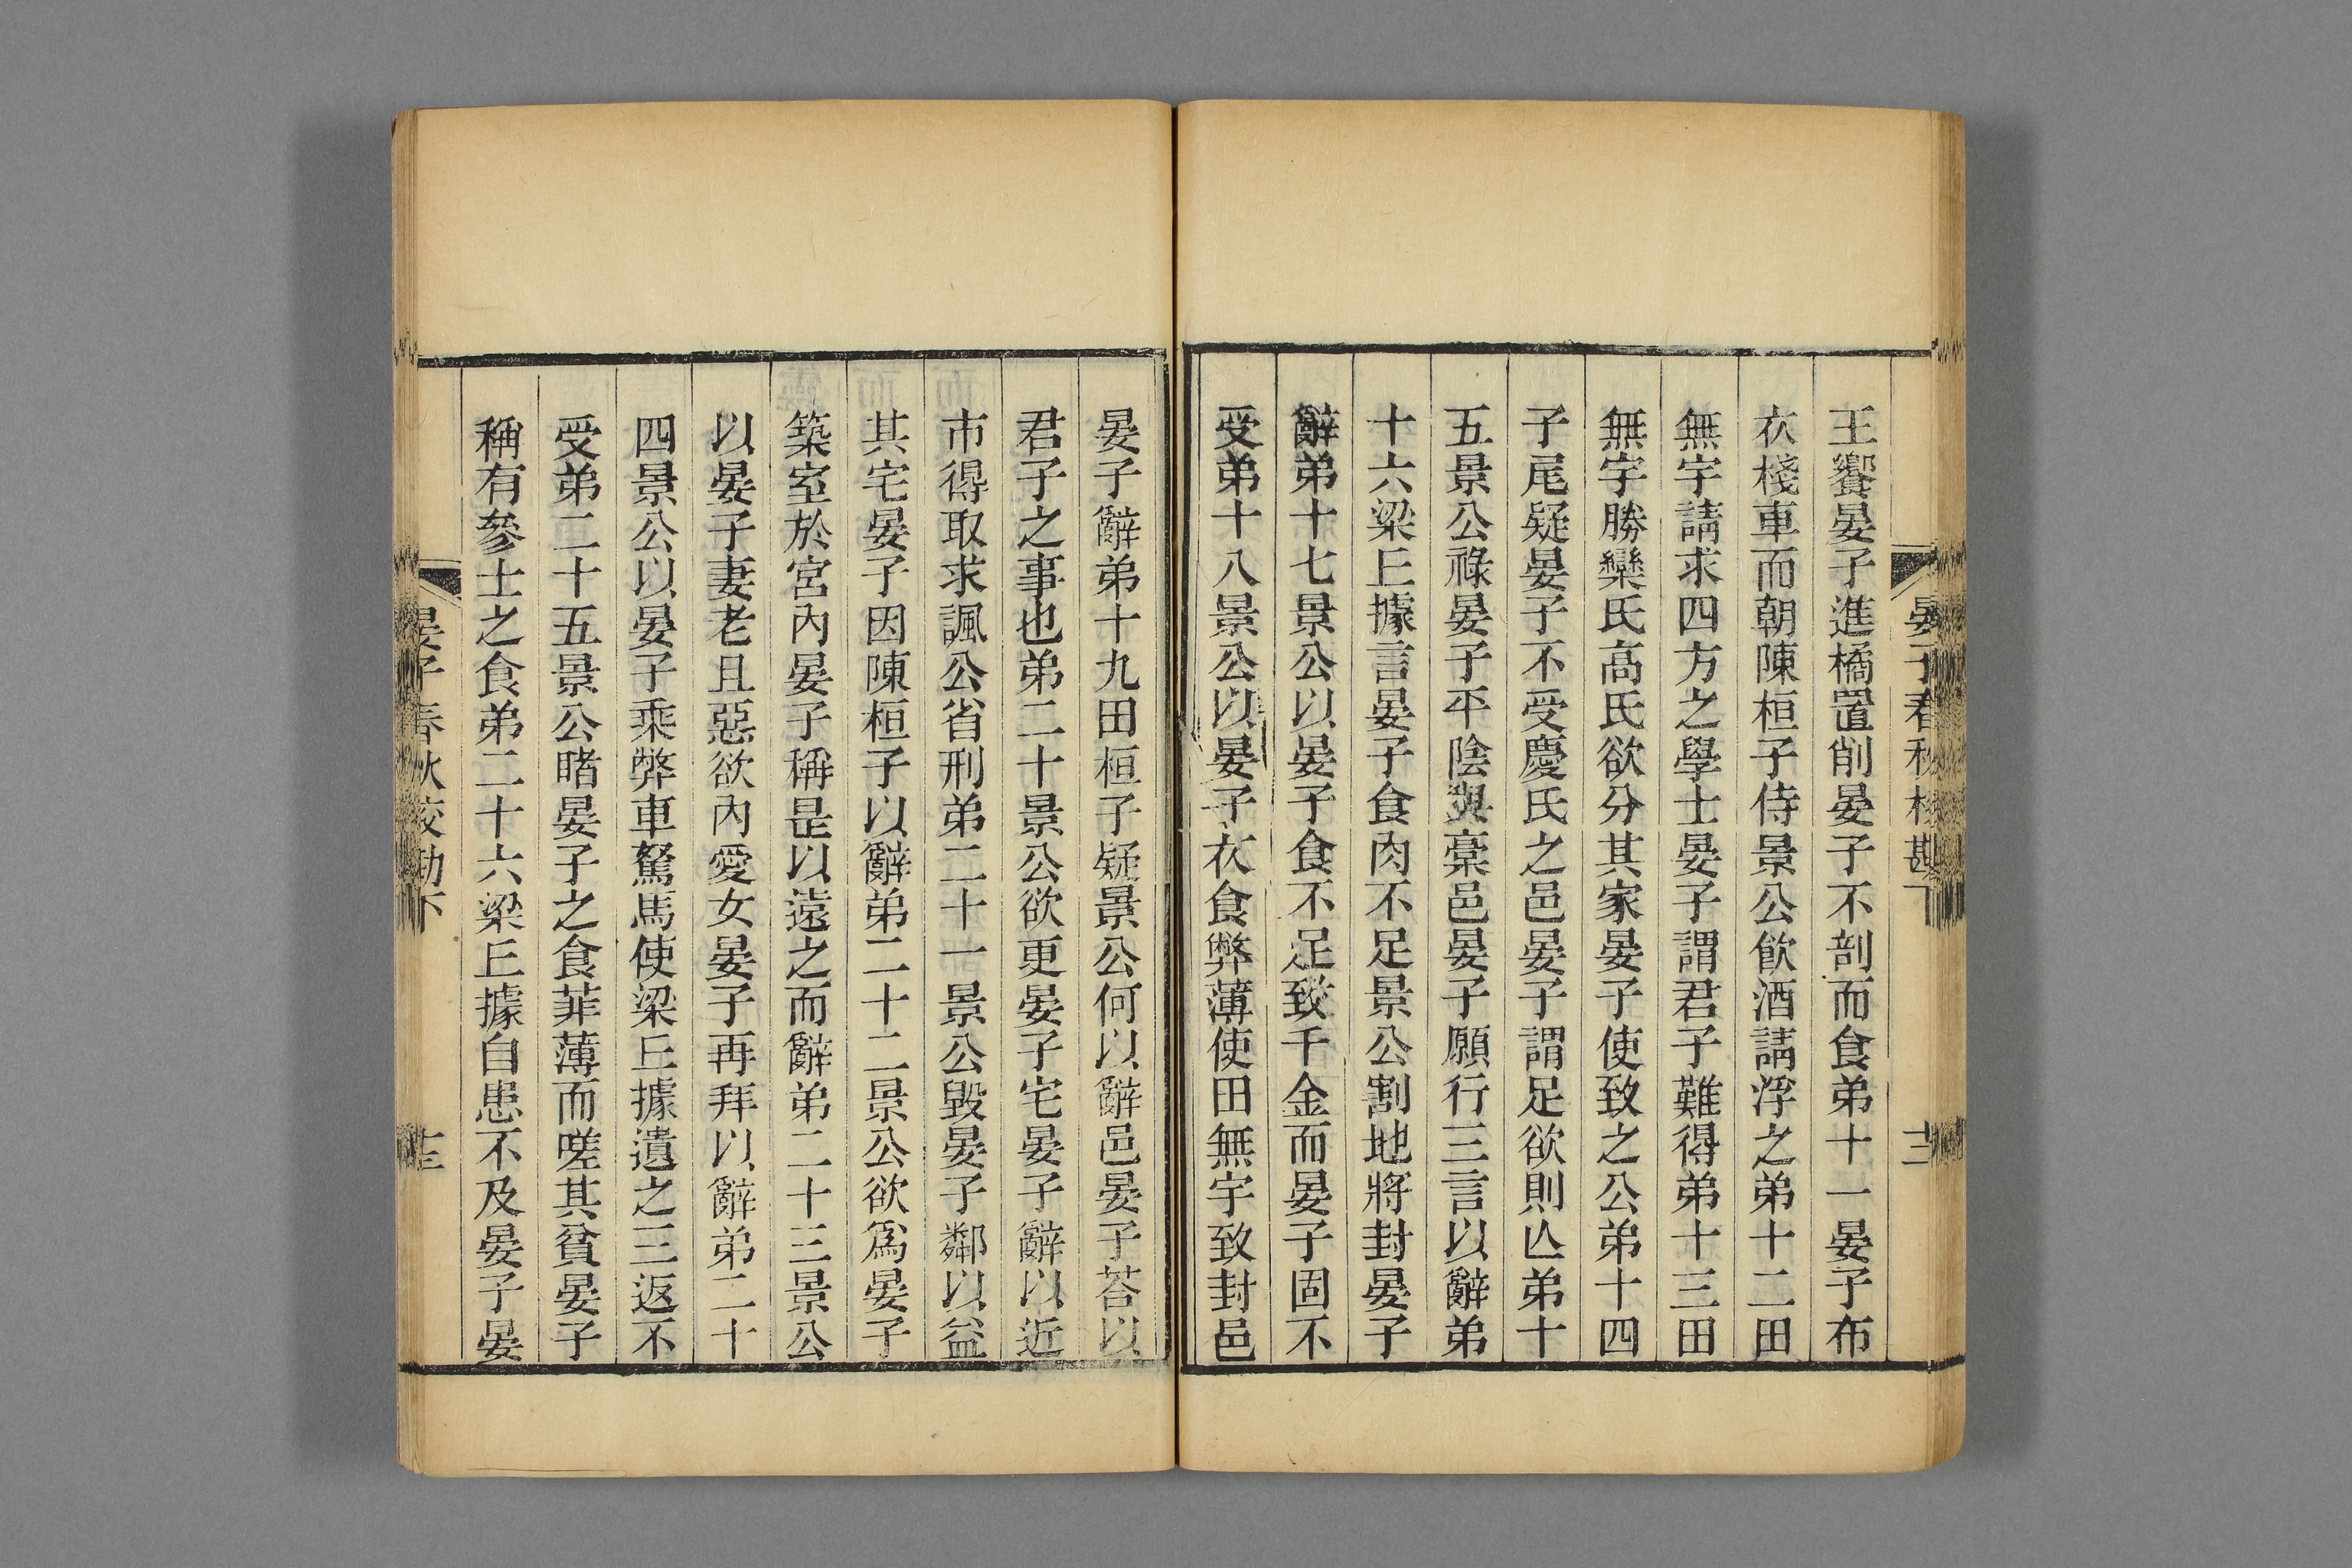 晏子春秋校勘下
十二
王饗晏子進橘置削晏子不剖而食弟十一晏子布
衣棧車而朝陳桓子侍景公飮酒請浮之弟十二田
無宇請求四方之學士晏子謂君子難得弟十三田
無宇勝欒氏高氏欲分其家晏子使致之公弟十四
子尾疑晏子不受慶氏之邑晏子謂足欲則亾弟十
五景公祿晏子平陰與稾邑晏子願行三言以辭弟
十六梁丘據言晏子食肉不足景公割地將封晏子
辭弟十七景公以晏子食不足致千金而晏子固不
受弟十八景公以晏子衣食弊薄使田無宇致封邑
晏子辭弟十九田桓子疑景公何以辭邑晏子荅以
君子之事也弟二十景公欲更晏子宅晏子辭以近
市得取求諷公省刑弟二十一景公毀晏子鄰以益
其宅晏子因陳桓子以辭弟二十二景公欲爲晏子
築室於宮內晏子稱是以遠之而辭弟二十三景公
以晏子妻老且惡欲內愛女晏子再拜以辭弟二十
四景公以晏子乘弊車駑馬使梁丘據遺之三返不
受弟二十五景公睹晏子之食菲薄而嗟其貧晏子
稱有參士之食弟二十六梁丘據自患不及晏子晏
晏子春秋校勘下
十三